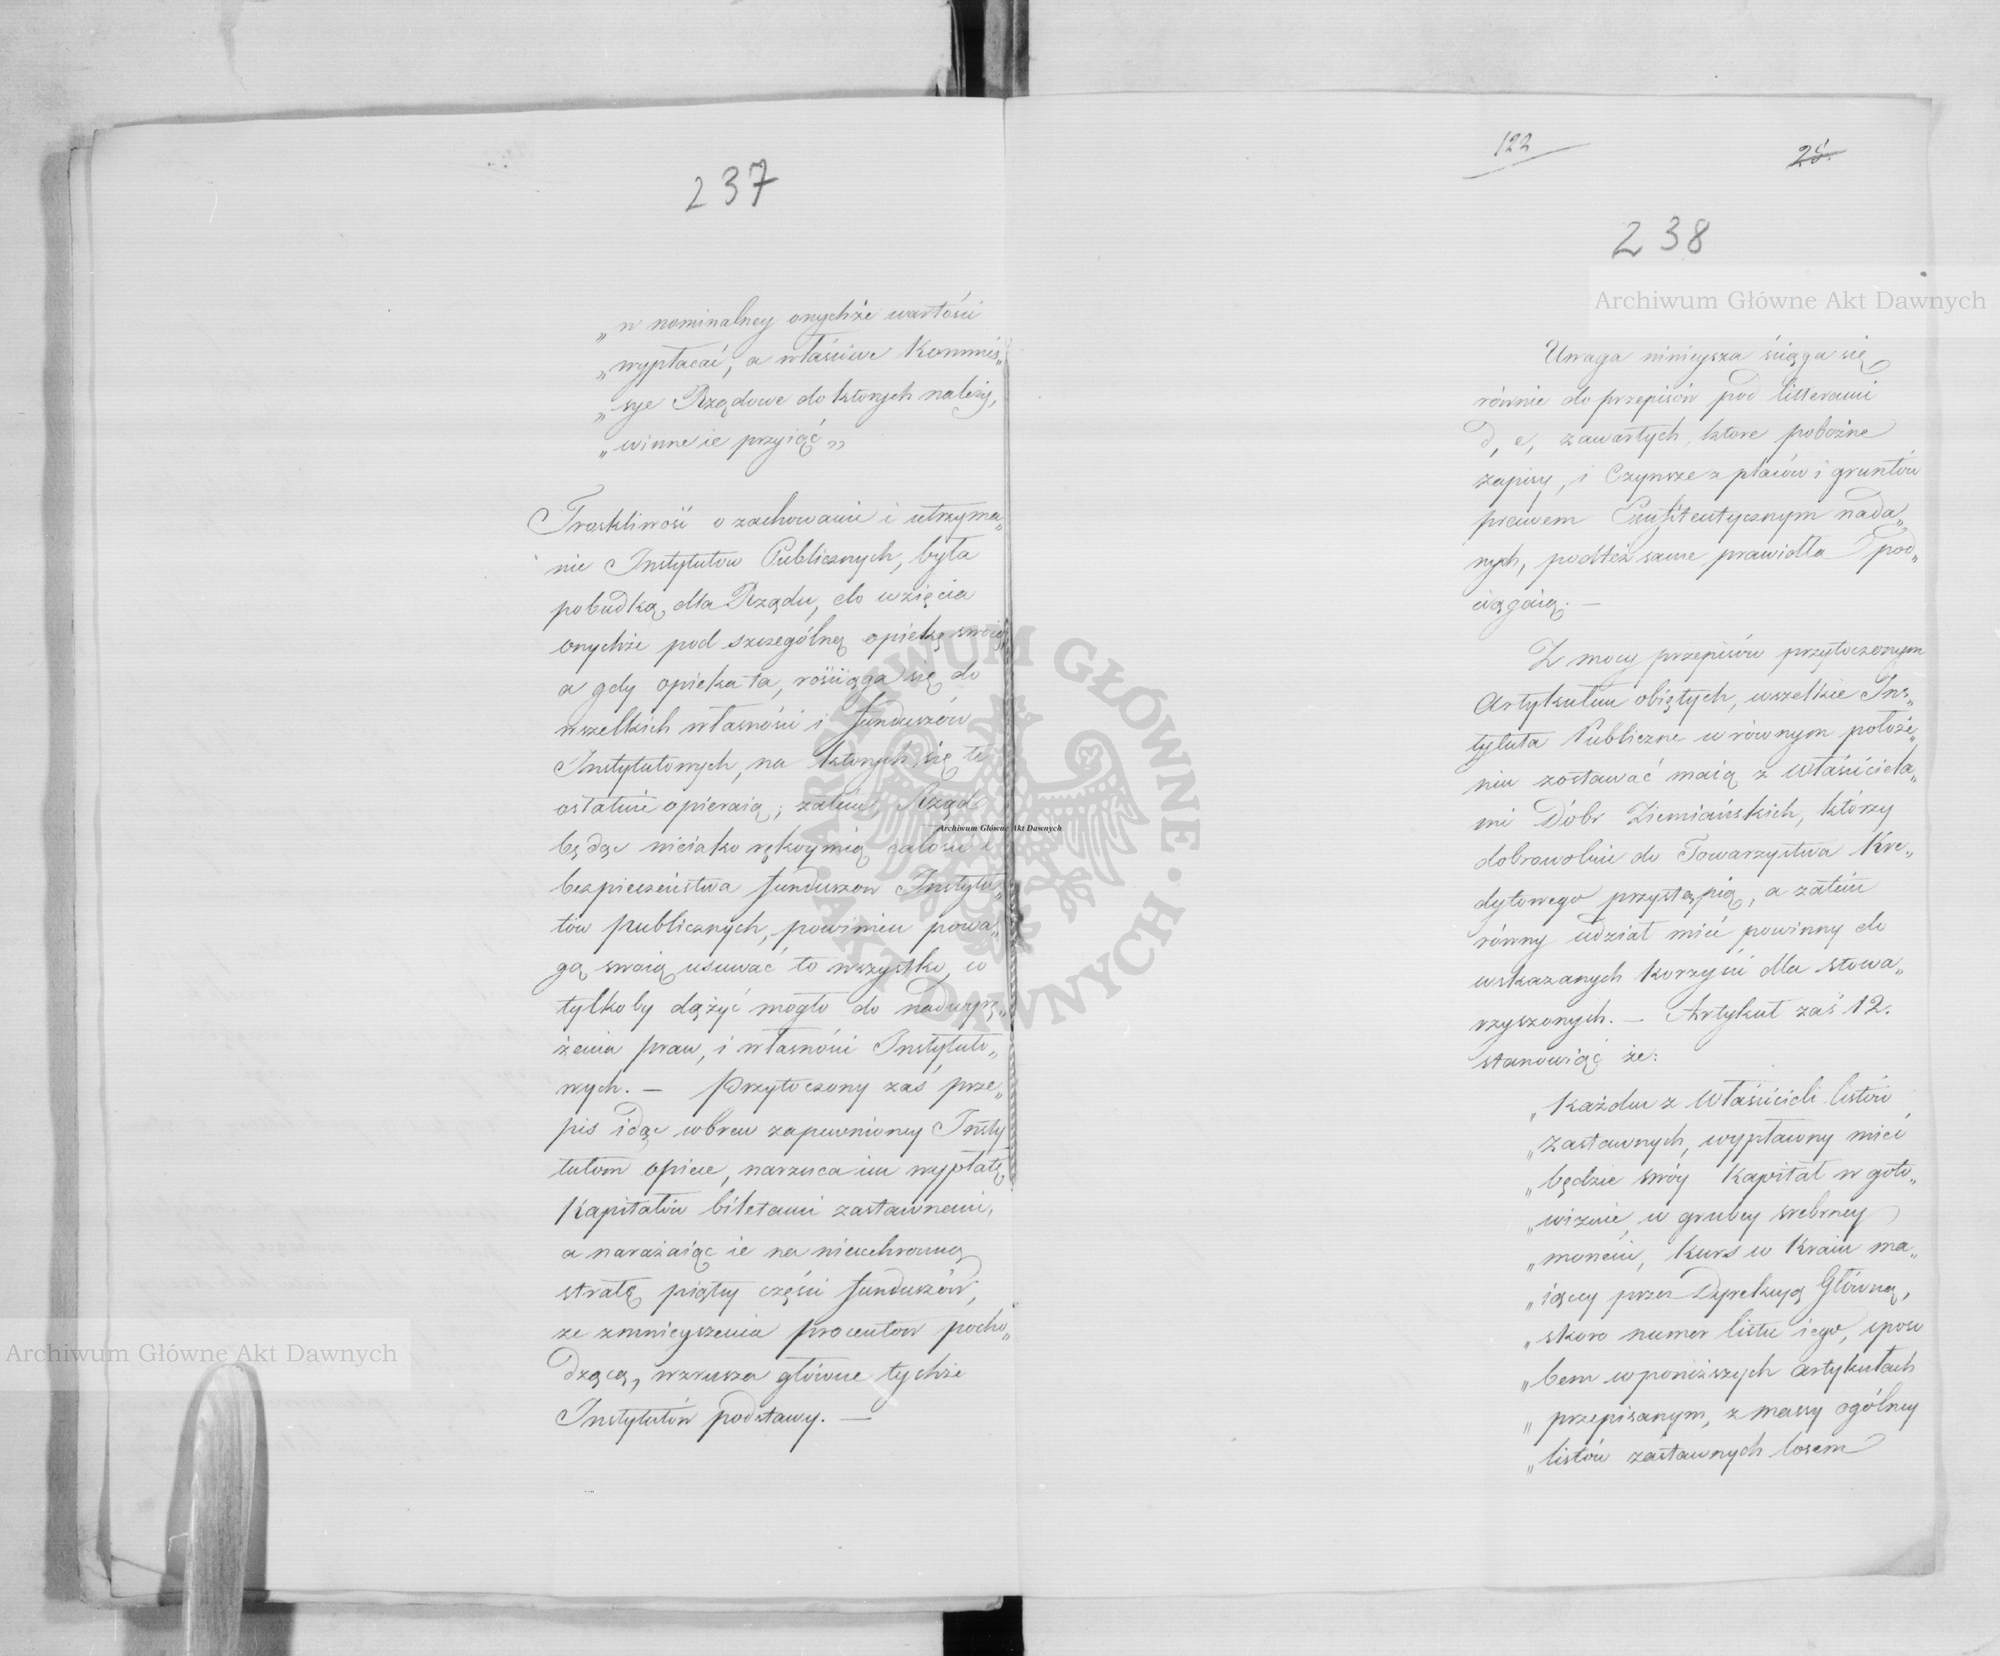 237
„w nominalney onychże wartości
„wypłacać, a właściwe Kommis„
„sye Rządowe do których należy,
„winne ie przyiąć„
Troskliwość o zachowanie i utrzyma„
nie Instytutow Publicznych, była
pobudką dla Rządu, do wzięcia
onychże pod szczególną opiekę swoię,
a gdy opieka ta, rościąga się do
wszelkich własności i funduszów
Instytutowych, na których się te
ostatnie opieraią; zatem Rząd
będąc nieiako rękoymią całości i
bezpieczeństwa funduszow Instytu„
tów publicznych, powinien powa„
gą swoią usuwać to wszystko, co
tylko by dążyć mogło do nadwyrę„
żenia praw, i własności Instytuto„
wych. — Przytoczony zaś prze„
pis idąc wbrew zapewnioney Insty
tutom opiece, narzuca im wypłatę
Kapitałów biletami zastawnemi,
a narażaiąc ie na nieuchronną
stratę piątey części funduszów,
ze zmnieyszenia procentow pocho„
dzącą, wzrusza główne tychże
Instytutów podstawy. —
122
25.
238
Uwaga ninieysza ściąga się
równie do przepisów pod litterami
d, e, zawartych, ktore pobożne
zapisy, i Czynsze z placów i gruntów
prawem Emfiteutycznym nada„
nych, podteż same prawidła pod„
ciągaią. —
Z mocy przepisów przytoczonym
Artykułem obiętych, wszelkie Ins„
tytuta Publiczne w równym położe„
niu zostawać maią z właściciela„
mi Dóbr Ziemiańskich, którzy
dobrowolnie do Towarzystwa Kre„
dytowego przystąpią, a zatem
równy udział mieć powinny do
wskazanych korzyści dla stowa„
rzyszonych. — Artykuł zaś 12.
stanowiąc że:
„Każden z właścicieli listów
„zastawnych, wypłacony mieć
„będzie swóy Kapitał w goto„
„wiznie w grubey srebrney
„monecie, kurs w Kraiu ma„
„iącey przez Dyrekcyą Główną,
„skoro numer listu iego, sposo
„bem w poniższych artykułach
„przepisanym, z massy ogólney
„listów zastawnych losem
Archiwum Główne Akt Dawnych
Archiwum Główne Akt Dawnych
Archiwum Główne Akt Dawnych
ARCHIWUM GŁÓWNE · AKT DAWNYCH ·